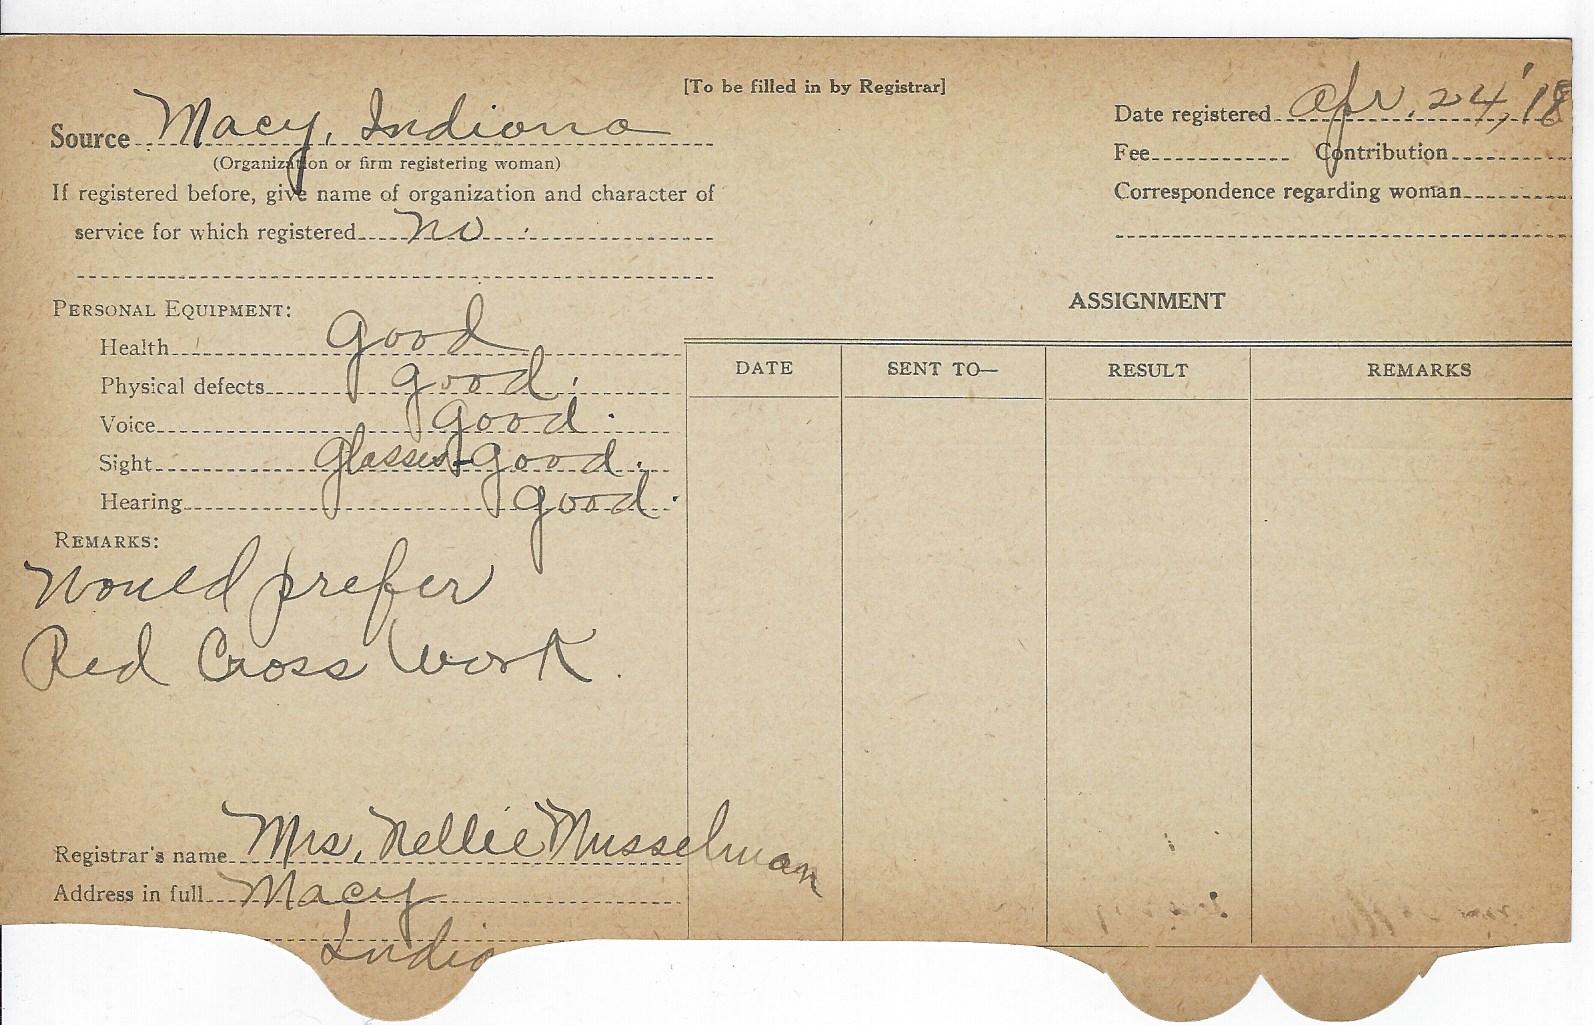 [To be filled in by Registrar]
Source Macy, Indiana
(Organization or firm registering woman)
If registered before, give name of organization and character of
service for which registered no
Date registered Apr. 24, '18
Fee Contribution
Correspondence regarding woman
PERSONAL EQUIPMENT:
Health good
Physical defects good.
Voice good.
Sight glasses-good.
Hearing good.
REMARKS:
Would prefer
Red Cross Work.
ASSIGNMENT
DATE SENT TO— RESULT REMARKS
Registrar's name Mrs. Nellie Musselman
Address in full Macy
India